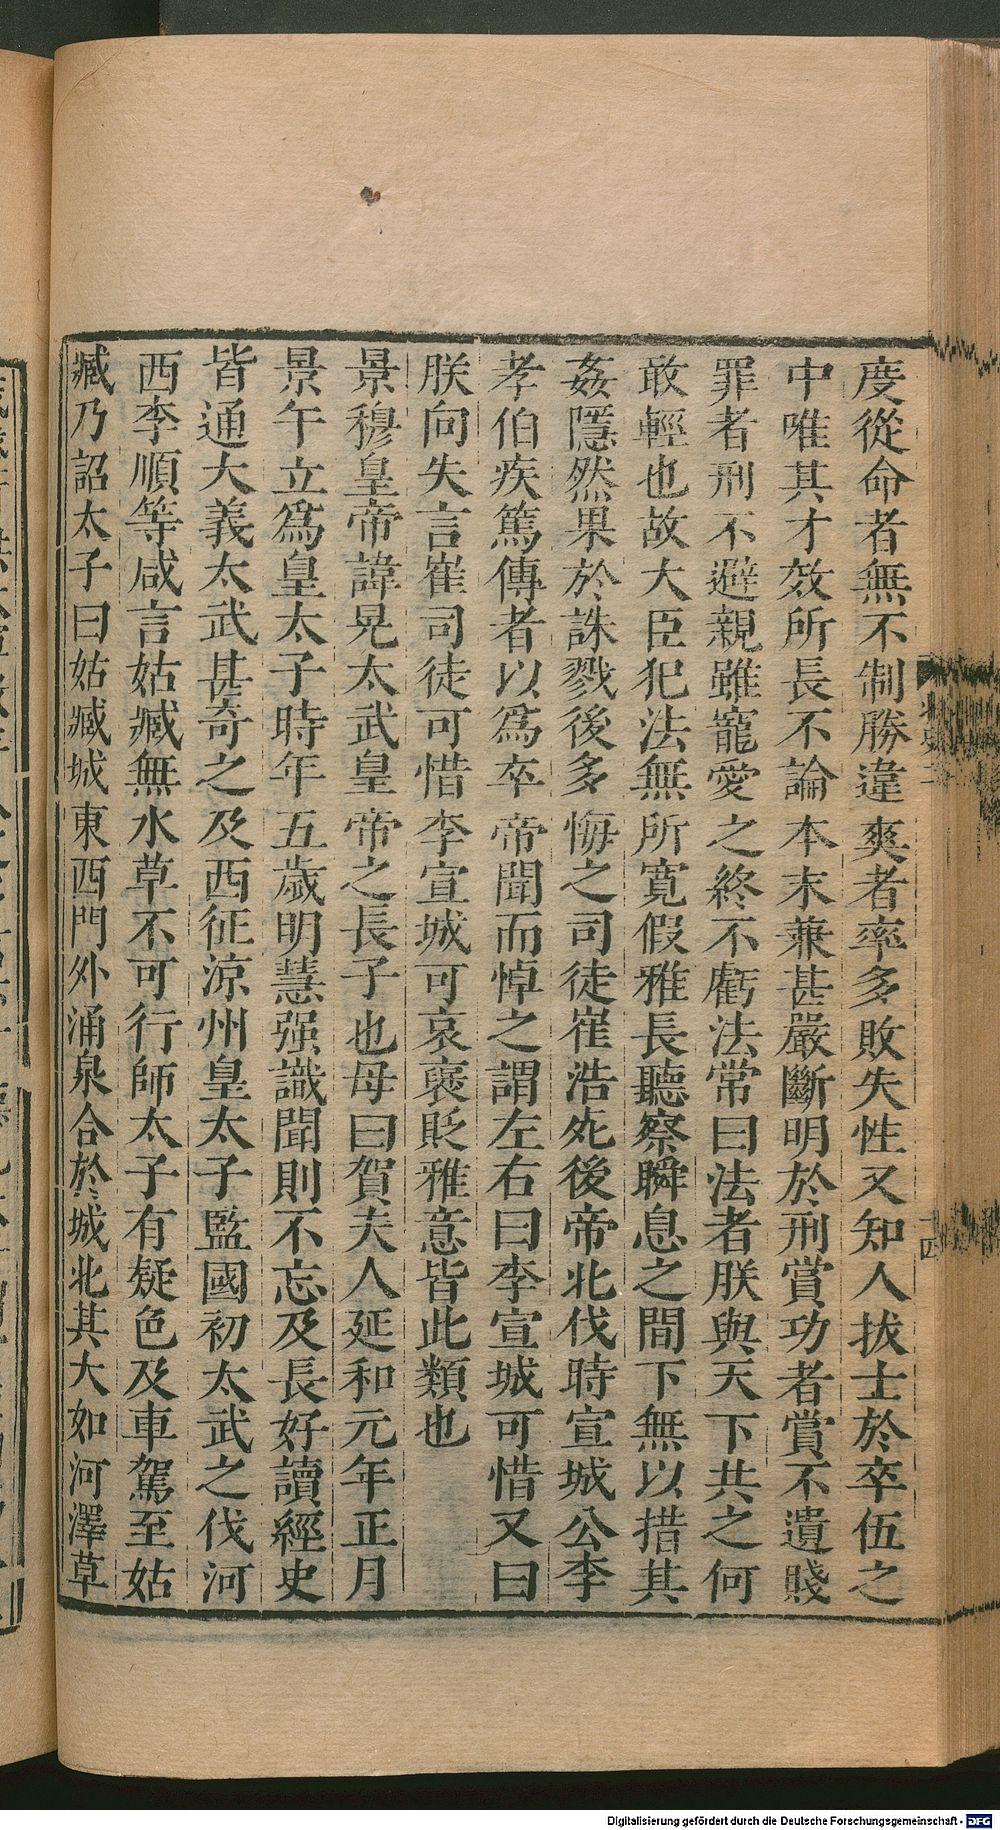 度從命者無不制勝違爽者率多敗失性又知人拔士於卒伍之
中唯其才效所長不論本末兼甚嚴斷明於刑賞功者賞不遺賤
罪者刑不避親雖寵愛之終不虧法常曰法者朕與天下共之何
敢輕也故大臣犯法無所寬假雅長聽察瞬息之間下無以措其
姦隱然果於誅戮後多悔之司徒崔浩死後帝北伐時宣城公李
孝伯疾篤傳者以爲卒帝聞而悼之謂左右曰李宣城可惜又曰
朕向失言崔司徒可惜李宣城可哀襃貶雅意皆此類也
景穆皇帝諱晃太武皇帝之長子也母曰賀夫人延和元年正月
景午立爲皇太子時年五歲明慧强識聞則不忘及長好讀經史
皆通大義太武甚奇之及西征涼州皇太子監國初太武之伐河
西李順等咸言姑臧無水草不可行師太子有疑色及車駕至姑
臧乃詔太子曰姑臧城東西門外涌泉合於城北其大如河澤草
Digitalisierung gefördert durch die Deutsche Forschungsgemeinschaft - DFG